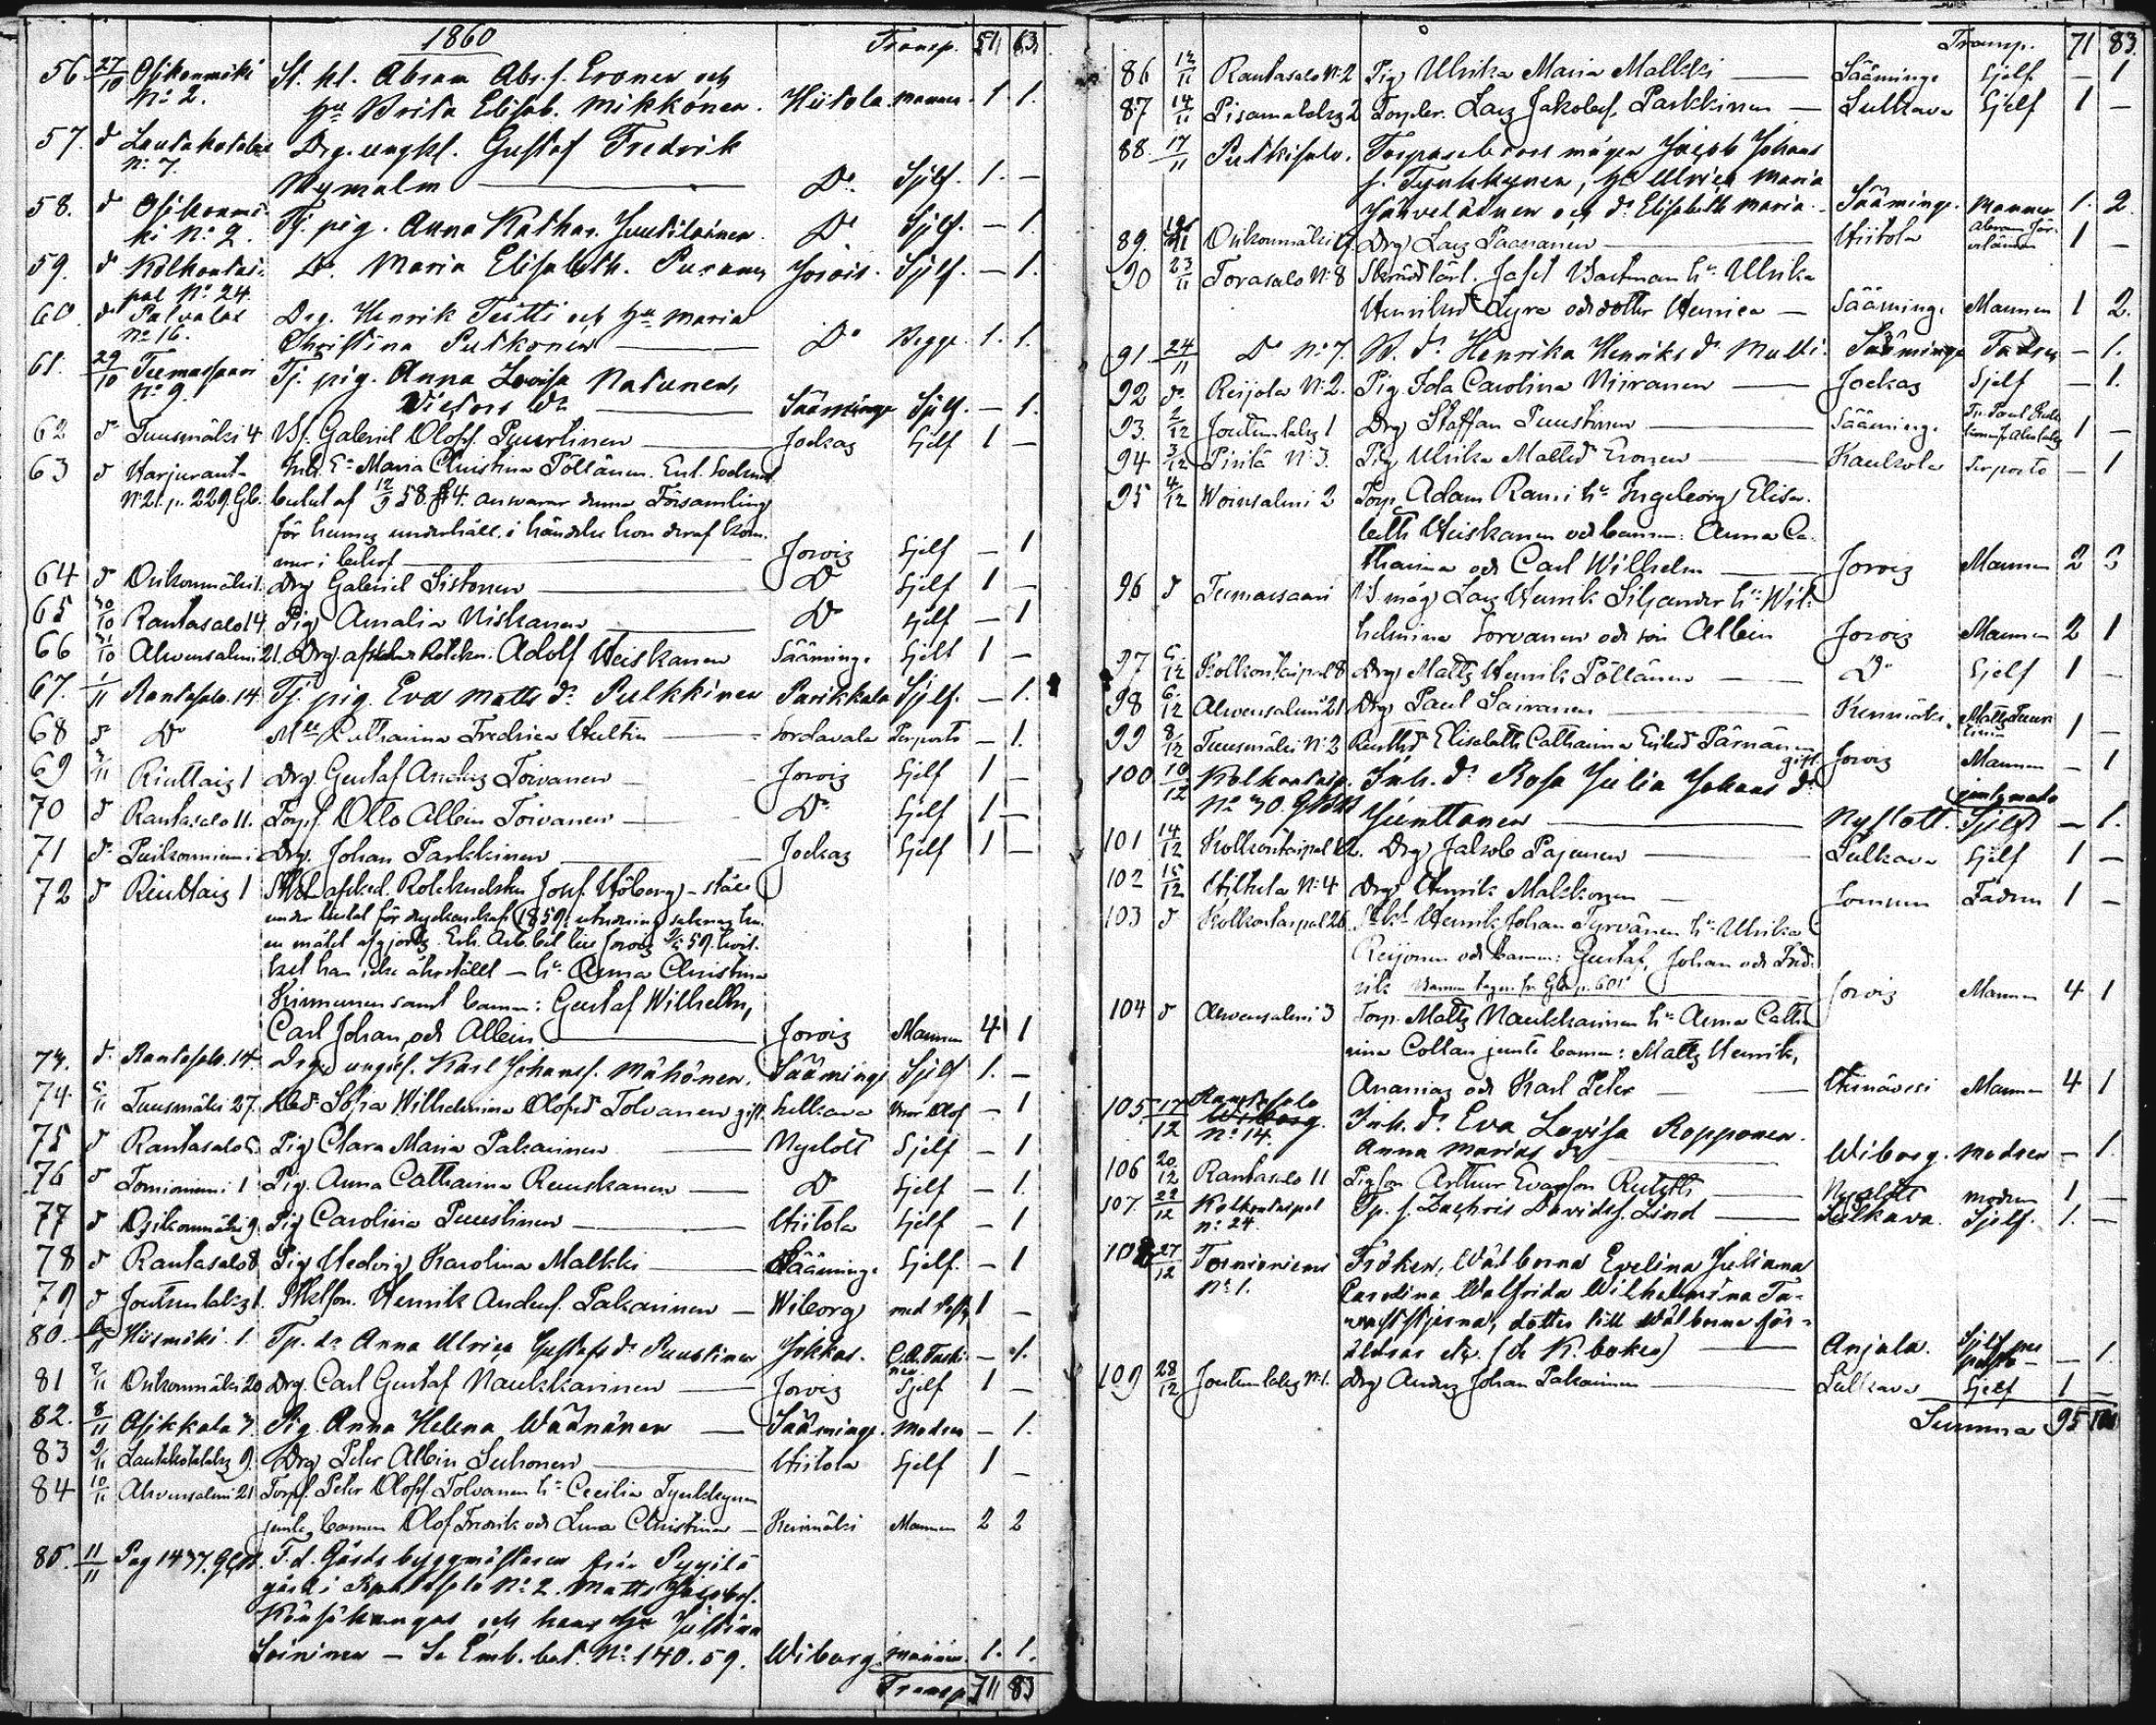 1860 Transp. 51 63
56 27/10 Osikonmäki St. kl. Abram Abr. s. Eronen och
N:o 2. hu Brita Elisab. Mikkonen. Hiitola mannen 1 1.
57. d:o Lautakotalax Drg. ungkl. Gustaf Fredrik
N:o 7. Nymalm D:o Sjelf. 1. —
58. d:o Osikonmä- Tj. pig. Anna Kathar. Juutilainen D:o Sjelf. — 1.
ki N:o 2.
59. d:o Kolkontai- D:o Maria Elisabeth. Puranen Jorois. Sjelf. — 1.
pal N:o 24.
60. d:o Palvalax Drg. Henrik Teitti och hu Maria
No 16. Christina Putkonen D:o Begge 1. 1.
61. 29/10 Tuemassaari Tj. pig. Anna Lovisa Natunen,
N:o 9. Sääminge Sjelf. — 1.
62 d:o Tuusmäki 4 Gabriel Olofs. Puustinen Jockas Sjelf 1 —
63 d Harjurant- Maria Christina Pöllänen. Enl. Sockne
N:o 21. p. 229. Gb. beslut af 12/9 58. § 4. answarar denna Församling
för hennes underhåll, i händelse hon deraf kom-
mer i behof Jorois Sjelf — 1
64 d Osikonmäki 1. Drg Gabriel Sistonen D:o Sjelf 1 —
65 30/10 Rantasalo 14 Pig Amalia Niskanen D:o Sjelf — 1
66 31/10 Ahvensalmi 21. Drg. Adolf Heiskanen Sääminge Sjelf 1 —
67. 1/11 Rantasalo. 14. Tj. pig. Eva Matts d:r Pulkkinen Parikkala Sjelf. — 1.
68 d:o D:o Catharina Fredrica Hultin Sordavala Per posto — 1.
69 Riuttais 1 Drg. Gustaf Anders Toivanen Jorois Sjelf 1 —
70 d Rantasalo 11. Torps. Otto Albin Toivanen D:o Sjelf 1 —
71 d:o Puikonniemi Drg. Johan Parkkinen Jockas Sjelf 1 —
72 d Riuttais 1 Josef Höberg
under beslut för dryckenskap 1859;
Jorois 59.
ket han icke — hu Anna Christina
Kinnunen samt barn: Gustaf Wilhelm,
Carl Johan, och Albin Jorois Mannen 4 1
73. d:o Rantasalo. 14. Drg. ungkl. Karl Johans s. Mähönen. Sääminge Sjelf 1. —
74. 5/11 Tuusmäki 27. Sofia Wilhelmina Olofsd. Tolvanen gift. Sulkava Olof — 1
75 d Rantasalo 5. Pig Clara Maria Pakarinen Nyslott Sjelf — 1
76 d Torninniemi 1 Pig. Anna Catharina Reuskanen D:o Sjelf — 1.
77 d Osikonmäki 9. Pig Carolina Puustinen Hiitola Sjelf — 1
78 d Rantasalo 8 Pig Hedvig Karolina Malkki Sääminge Sjelf. — 1
79 d Joutsenlaks 1. Henrik Anders s. Pakarinen Wiborg med 1 —
80. Hiismäki. 1. Tp. dr Anna Ulrica Gustafs d:r Puustinen Jokkas. — 1.
81 Osikonmäki 20 Drg. Carl Gustaf Naukkarinen Jorois Sjelf 1 —
82. 8/11 Asikkala 3. Pig. Anna Helena Wäänänen Sääminge. Modren — 1.
83 9/11 Lautakotalax 9. Drg Peter Albin Suhonen Hiitola Sjelf 1 —
84 10/11 Ahvensalmi 21 Torps. Peter Olofs. Tolvanen hu Cecilia Tynkkynen
jemte barnen Olof Fredrik och Lena Christina Kerimäki Mannen 2 2
85. 11/11 Pag 1437. F. d. Gårdsbyggmästaren från Pyyilä
gård i Rantasalo N:o 2. Matts Jacobs s.
Könsäkangas och hans hu Justina
Soininen — Se Emb. bet. N:o 140. 59. Wiborg. mannen. 1. 1.
Transp. 71 83
Transp. 71 83.
86 12/11 Rantasalo N:o 2 Pig Ulrika Maria Malkki Sääminge Sjelf — 1
87 14/11 Pisamalahs 2 Lars Jakobs s. Parkkinen Sulkava Sjelf 1 —
88. 17/11 Putkisalo. Torparebrors mågen Jacob Johans
s. Tynkkynen, hu Ulrica Maria
Järveläinen och d:r Elisabeth Maria. Sääminge. Mannen 1. 2.
89. Osikonmäki Drg Lars Paananen Hiitola Abram Jär-veläinen 1 —
90 23/11 Torasalo N:o 8 Josef Wartman hu Ulrika
Henriksd:r Lyra och dotter Henrica Sääminge Mannen 1 2.
91. 24/11 D:o N:o 7. Henrika Henriks d:r Multi Sääminge Fadren — 1.
92 d:o Reijola N:o 2. Pig Ida Carolina Niiranen Jockas Sjelf — 1.
93. 2/12 Joutsenlaks 1 Drg Staffan Puustinen Sääminge 1 —
94. 3/12 Pirilä N:o 3. Pig Ulrika Mattsd:r Eronen Kaukola Per posto — 1
95 4/12 Woinsalmi 2 Torp. Adam Rami hu Ingeborg Elisa-
beth Heiskanen och barnen: Anna Ca-
tharina och Carl Wilhelm Jorois Mannen 2 3
96 d Tuemassaari måg Lars Henrik Siljander hu Wil-
helmina Sorvanen och son Albin Jorois Mannen 2 1
97 Kolkontaipal 8 Drg Matts Henrik Pöllänen D:o Sjelf 1 —
98 6/12 Ahvensalmi 21 Drg Paul Sairanen Kerimäki. 1 —
99 8/12 Tuusmäki N:o 2 Elisabeth Catharina Pärnänen gift. Jorois Mannen — 1
100. 10/12 Kolkontaip. Inh. d:r Rosa Julia Johans d:r
No 30. Junttonen Nyslott. Sjelf — 1.
101 14/12 Kolkontaipal 12. Drg Jakob Pajunen Sulkava Sjelf 1 —
102 15/12 Hilhola N:o 4 Drg Henrik Malkkonen Fadren 1 —
103 d Kolkontaipal 26 Henrik Johan Tyrvänen hu Ulrika
Reijonen och barnen: Gustaf, Johan och Fred-
rik p. 601 Jorois Mannen 4 1
104 d Ahvensalmi 3 Torp. Matts Naukkarinen hu Anna Catha-
rina Collan jemte barnen: Matts Henrik,
Ananias och Karl Peter Heinävesi Mannen 4 1
105. 17/12 Rantasalo Inh. d:r Eva Lovisa Ropponen.
N:o 14. Anna Marias d:r Wiborg. modren — 1.
106 20/12 Rantasalo 11 Pigson Arthur Evasson Nyslott modren 1 —
107. 22/12 Kolkontaipal Tp. s. Zachris Davids s. Lind Sulkava. Sjelf. 1. —
N:o 24.
108 27/12 Torninniemi Fröken, Wälborna Evelina Juliana
N:o 1. Carolina Walfrida Wilhelmina Ta-
waststjerna, dotter till Wälborna för-
äldrar etc. (se K. boken) Anjala. Sjelf per posto — 1.
109 28/12 Joutsenlaks N:o 1. Drg Anders Johan Pakarinen Sulkava Sjelf 1 —
Summa 95